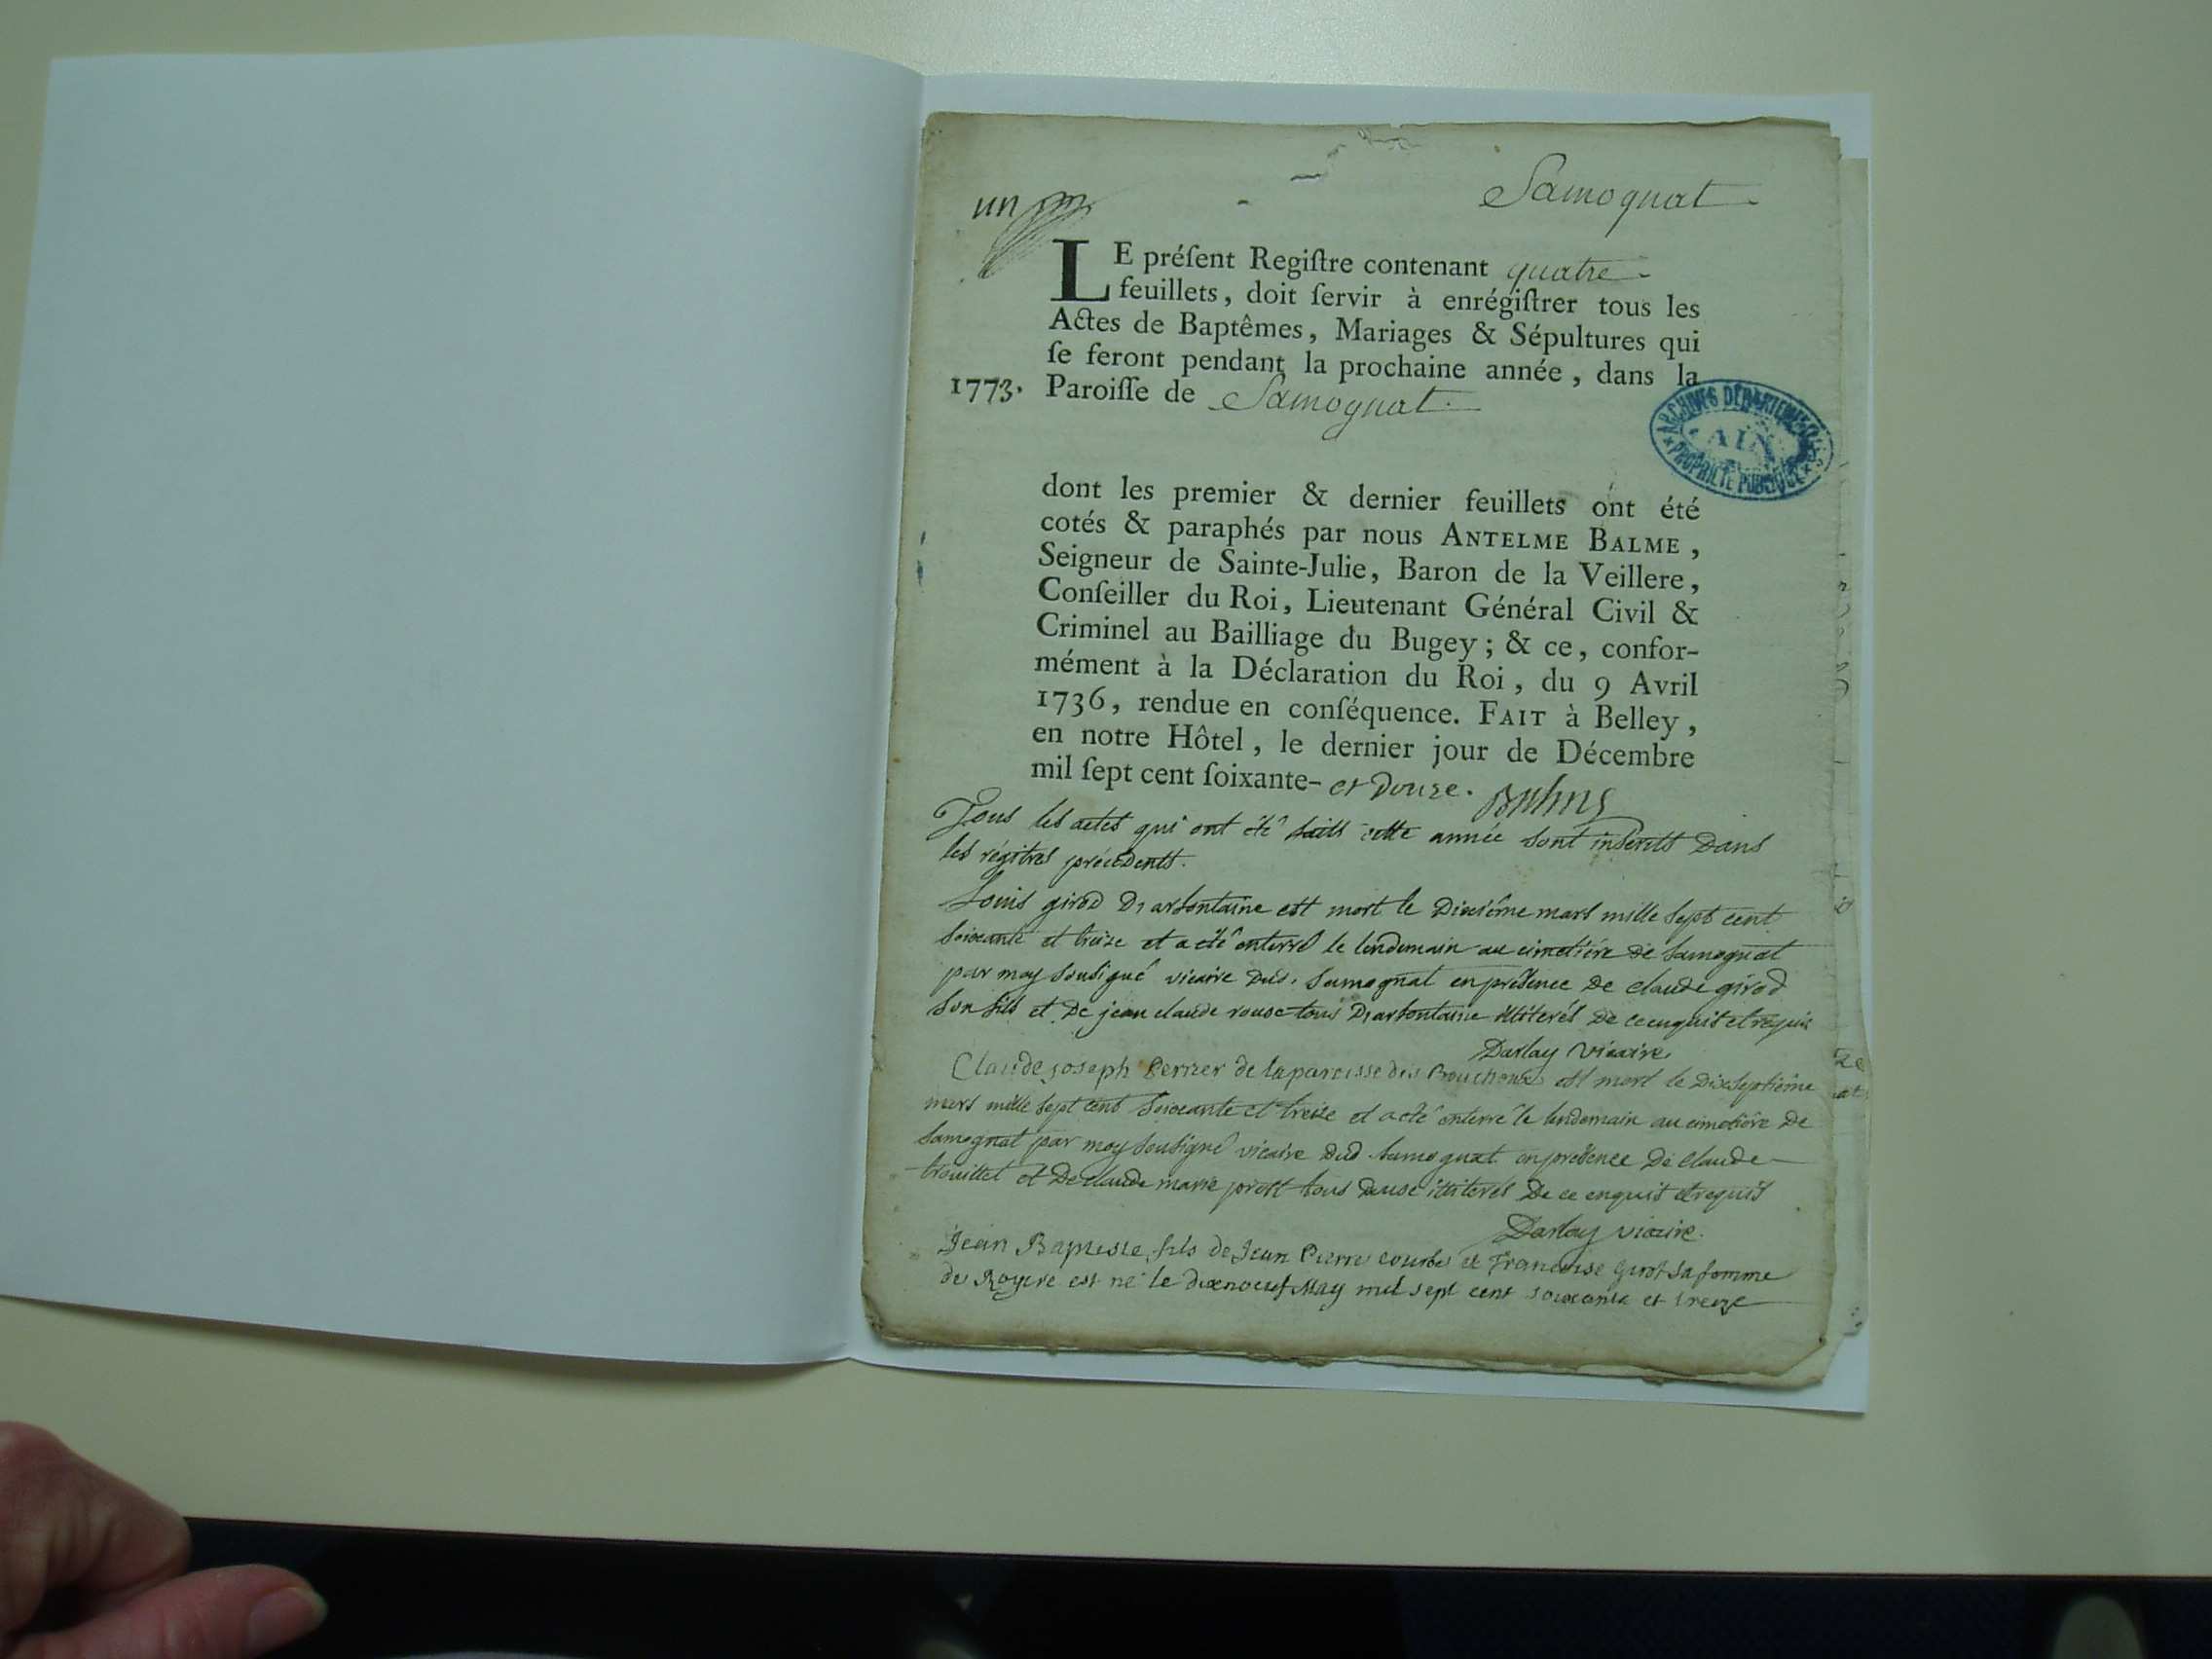 un
Samognat
LE préſent Regiſtre contenant quatre
feuillets, doit ſervir à enrégiſtrer tous les
Actes de Baptêmes, Mariages & Sépultures qui
ſe feront pendant la prochaine année, dans la
1773. Paroiſſe de Samognat.
ARCHIVES DÉPARTEMENTALES
AIN
PROPRIÉTÉ PUBLIQUE
dont les premier & dernier feuillets ont été
cotés & paraphés par nous ANTELME BALME,
Seigneur de Sainte-Julie, Baron de la Veillere,
Conſeiller du Roi, Lieutenant Général Civil &
Criminel au Bailliage du Bugey; & ce, confor-
mément à la Déclaration du Roi, du 9 Avril
1736, rendue en conſéquence. FAIT à Belley,
en notre Hôtel, le dernier jour de Décembre
mil ſept cent ſoixante- et Douze.
Tous les actes qui ont été faits cette année sont inserits Dans
les régitres précedents.
Louis girod D'arfontaine est mort le Dixiême mars mille sept cent
soixante et treize et a été enterré le lendemain au cimetière de samognat
par moy sousigné vicaire dud. samognat en présence de claude girod
son fils et De jean claude roux tous D'arfontaine illiterés De ce enquis et requis
Darlay vicaire
Claude joseph Perrier de la paroisse des Bouchoux est mort le Dixseptiême
mars mille sept cent soixante et treize et a été enterré le lendemain au cimetière De
samognat par moy sousigné vicaire Dud samognat en présence De claude
trouillet et De claude marie prost tous deux illiterés De ce enquis et requis
Darlay vicaire.
Jean Baptiste, fils de Jean Pierre courbe et Francoise girot sa femme
de Royere est né le dixnoeuf May mil sept cent soixante et treize